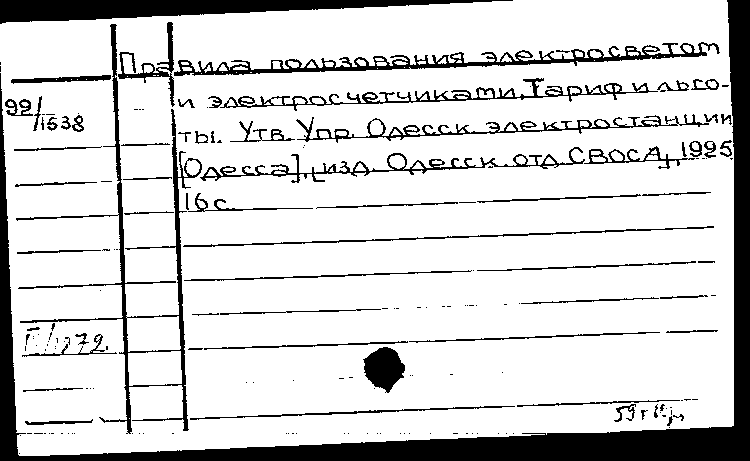 Правила пользования электросветом
99/1538
и электросчетчиками. Тариф и льго-
ты. Утв. Упр. Одесск. электростанции
[Одесса], [изд. Одесск. отд. СВОСА], 1925
16 с.